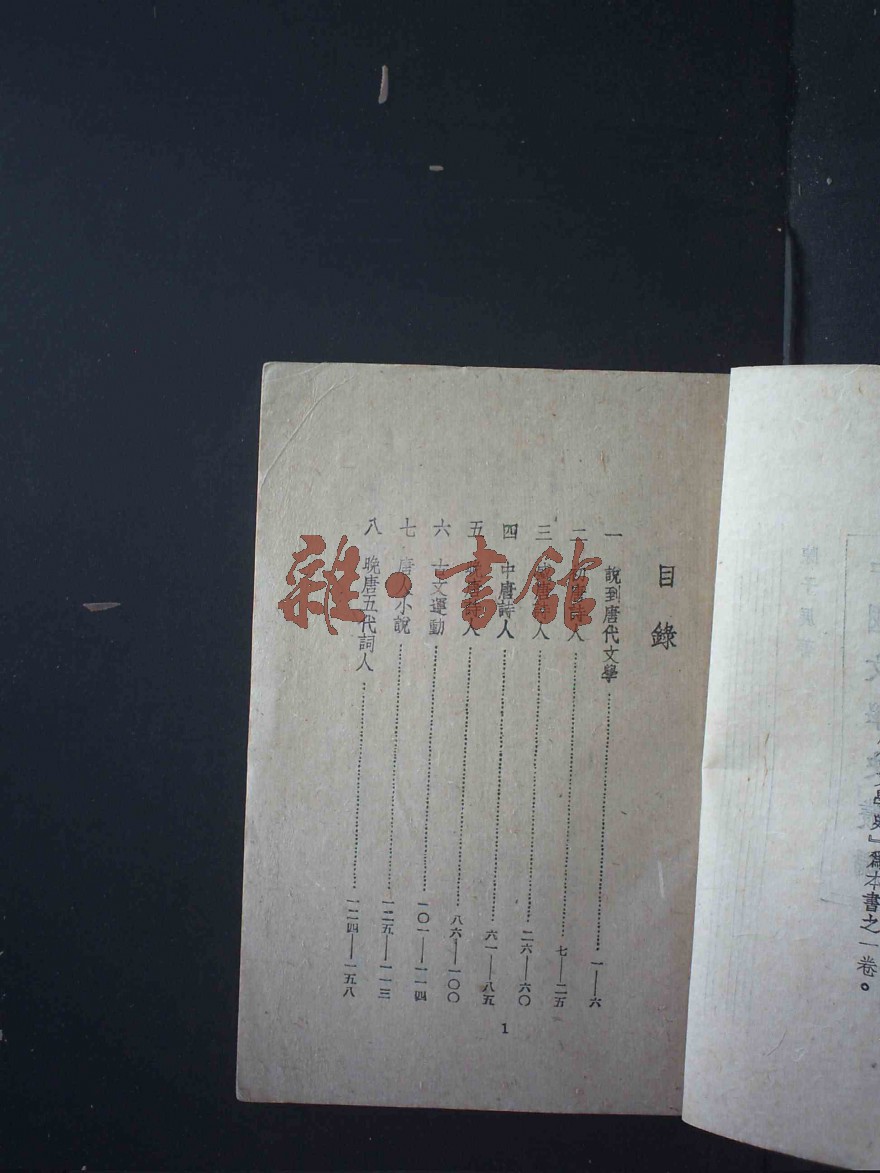 目錄
一 說到唐代文學 一——六
二 初唐詩人 七——二五
三 盛唐詩人 二六——六〇
四 中唐詩人 六一——八五
五 晚唐詩人 八六——一〇〇
六 古文運動 一〇一——一一四
七 唐人小說 一二五——一一三
八 晚唐五代詞人 一二四——一五八
1
雜·書館
學史』爲本書之一卷。